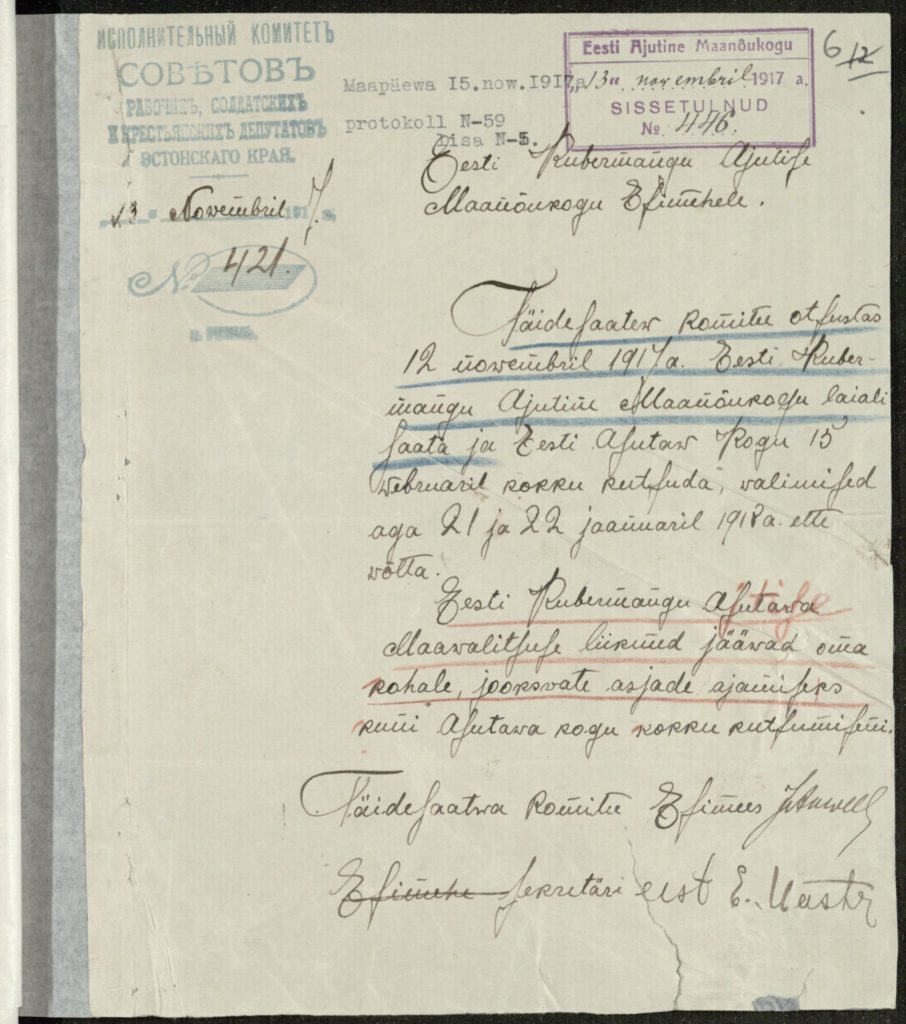 ИСПОЛНИТЕЛЬНЫЙ КОМИТЕТЪ
СОВѢТОВЪ
РАБОЧИХЪ, СОЛДАТСКИХЪ
И КРЕСТЬЯНСКИХЪ ДЕПУТАТОВЪ
ЭСТОНСКАГО КРАЯ.
„13“ Novembril 1917 г.
№ 421.
Maapäewa 15.now.1917a
protokoll N-59
Lisa N-5.
Eesti Ajutine Maanõukogu
„13“ novembril 1917 a.
SISSETULNUD
№ 446.
6 12
Eesti Kubermangu Ajutise
Maanõukogu Esimehele.
Täidesaatew komitee otsustas
12 nowembril 1917a. Eesti Kuber-
mangu Ajutine Maanõukogu laiali
saata ja Eesti Asutaw Kogu 15
webruaril kokku kutsuda, walimised
aga 21 ja 22 jaanuaril 1918a. ette
wõtta.
Eesti Kubermangu Asutawa
Maawalitsuse liikmed jääwad oma
kohale, jooksvate asjade ajamiseks
kuni Asutawa kogu kokku kutsumiseni.
Täidesaatwa komitee Esimees JAnwelt
Esimehe sekretäri eest E.